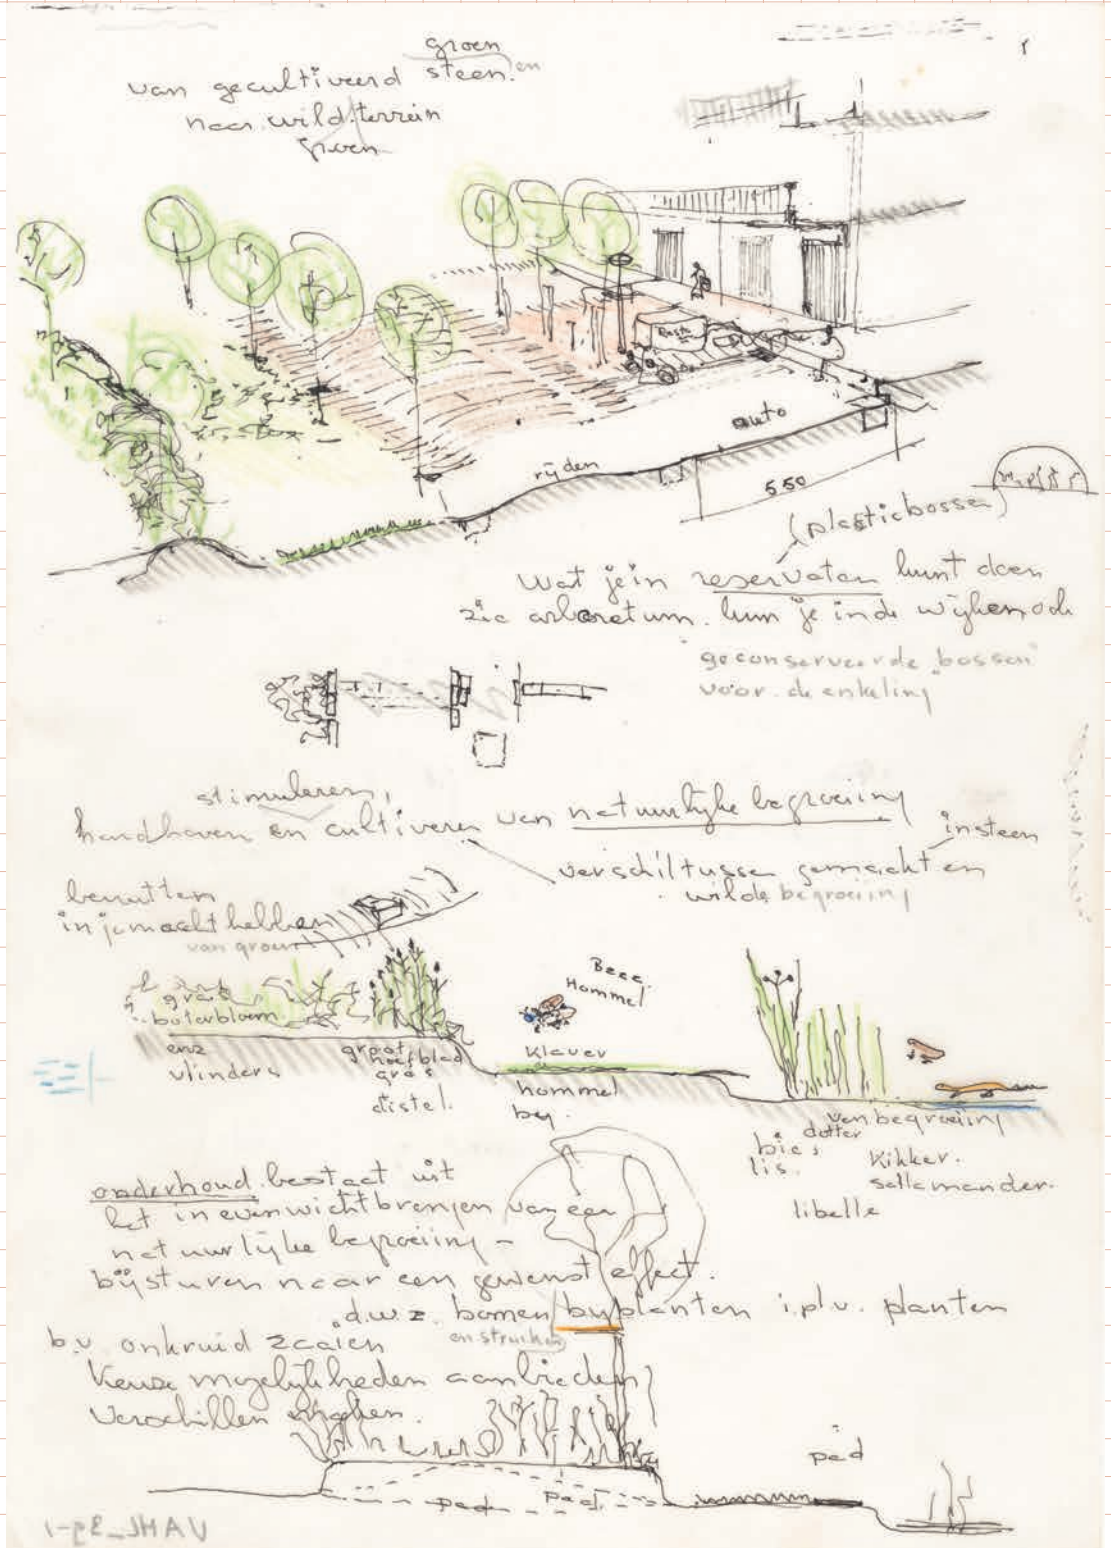 groen
van gecultiveerd steen en
naar wild terrein
groen
auto
rijden
550
(plasticbossen)
Wat je in reservaten kunt doen
zie arboretum. kun je in de wijken ook
"geconserveerde bossen"
voor de enkeling
stimuleren,
handhaven en cultiveren van natuurlijke begroeiing
in steen
verschil tussen gemaakt en
wilde begroeiing
benutten
in je macht hebben
van groen
gras
boterbloem
Beee.
Hommel
enz
vlinders
groot
hoefblad
gras
distel.
Klaver
hommel
bij.
ven begroeiing
dotter
bies
lis.
Kikker.
sallamander.
libelle
onderhoud bestaat uit
het in evenwicht brengen van een
natuurlijke begroeiing -
bijsturen naar een gewenst effect.
d.w.z. bomen bijplanten i.pl.v. planten
en struiken
b.v. onkruid zaaien
Keuze mogelijkheden aanbieden
verschillen
pad
pad
pad
VAHL_39-1